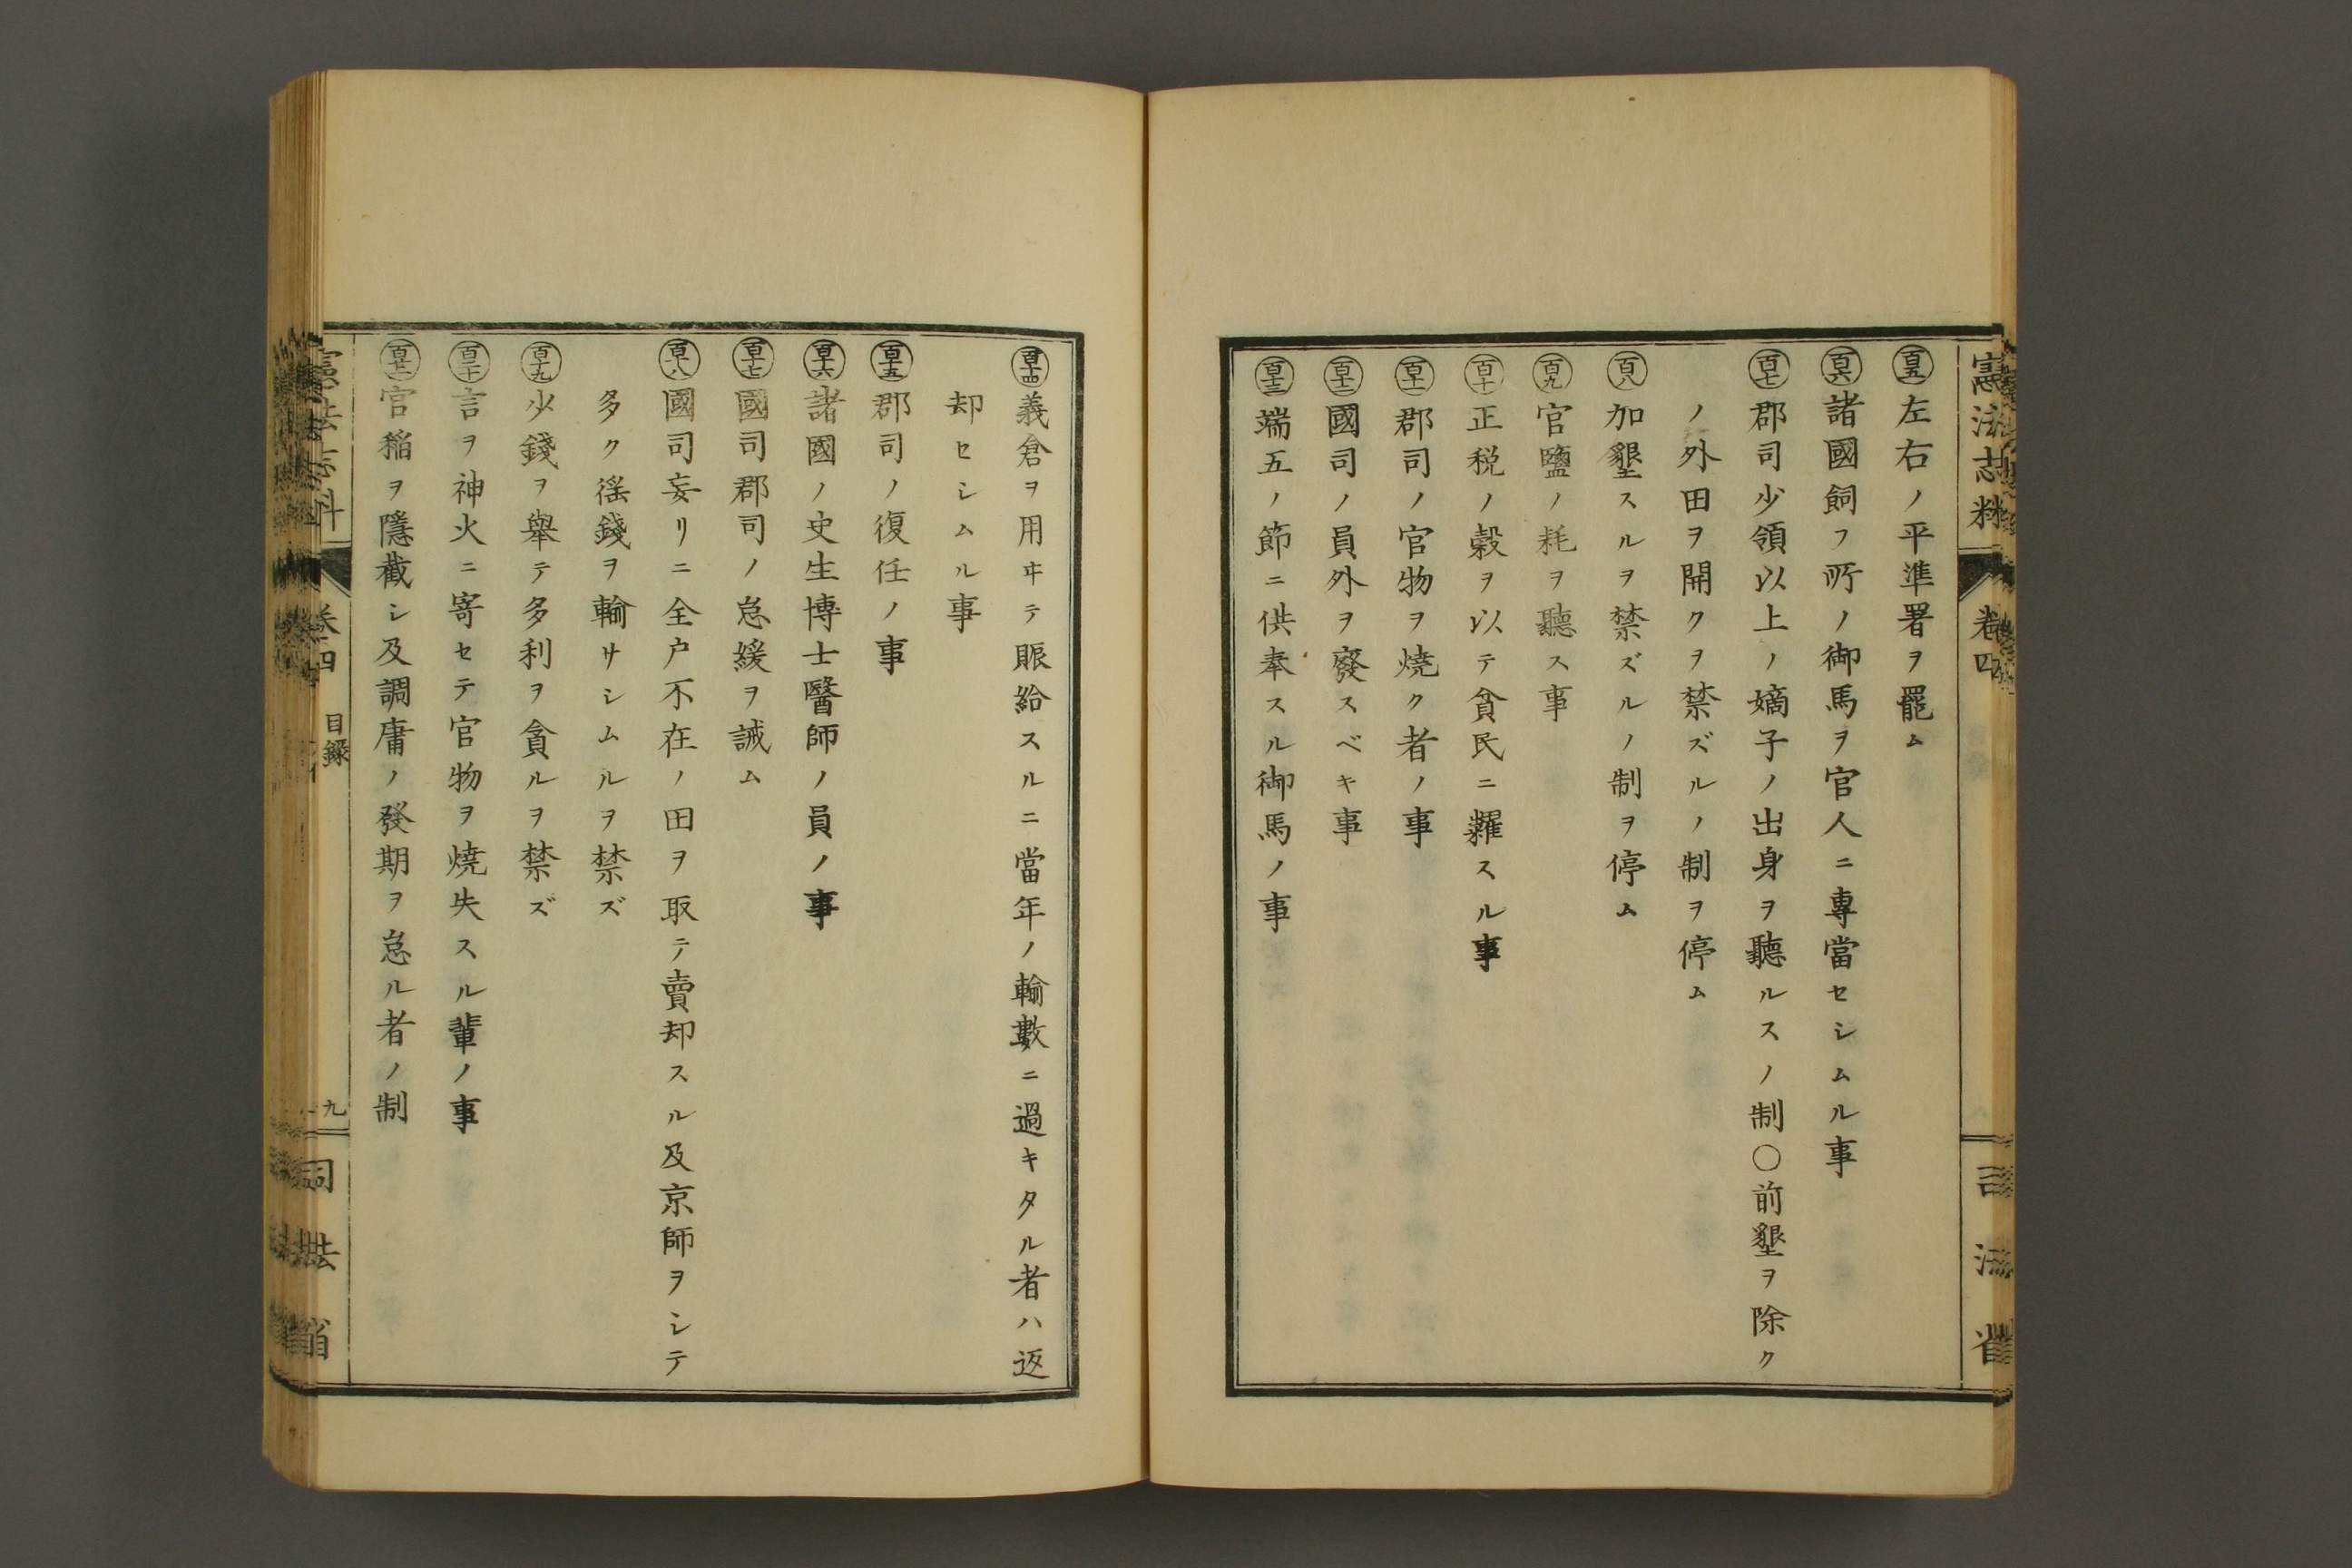 憲法志料 卷四 司法省
百五 左右ノ平準署ヲ罷ム
百六 諸國飼フ所ノ御馬ヲ官人ニ專當セシムル事
百七 郡司少領以上ノ嫡子ノ出身ヲ聽ルスノ制〇前墾ヲ除ク
ノ外田ヲ開クヲ禁ズルノ制ヲ停ム
百八 加墾スルヲ禁ズルノ制ヲ停ム
百九 官鹽ノ耗ヲ聽ス事
百十 正税ノ穀ヲ以テ貪民ニ糶スル事
百十一 郡司ノ官物ヲ燒ク者ノ事
百十二 國司ノ員外ヲ廢スベキ事
百十三 端五ノ節ニ供奉スル御馬ノ事
百十四 義倉ヲ用ヰテ賑給スルニ當年ノ輸數ニ過キタル者ハ返
却セシムル事
百十五 郡司ノ復任ノ事
百十六 諸國ノ史生博士醫師ノ員ノ事
百十七 國司郡司ノ怠緩ヲ誡ム
百十八 國司妄リニ全户不在ノ田ヲ取テ賣却スル及京師ヲシテ
多ク徭錢ヲ輸サシムルヲ禁ズ
百十九 少錢ヲ舉テ多利ヲ貪ルヲ禁ズ
百二十 言ヲ神火ニ寄セテ官物ヲ燒失スル輩ノ事
百廿一 官稲ヲ隱截シ及調庸ノ發期ヲ怠ル者ノ制
憲法志料 卷四 目錄 九 司法省